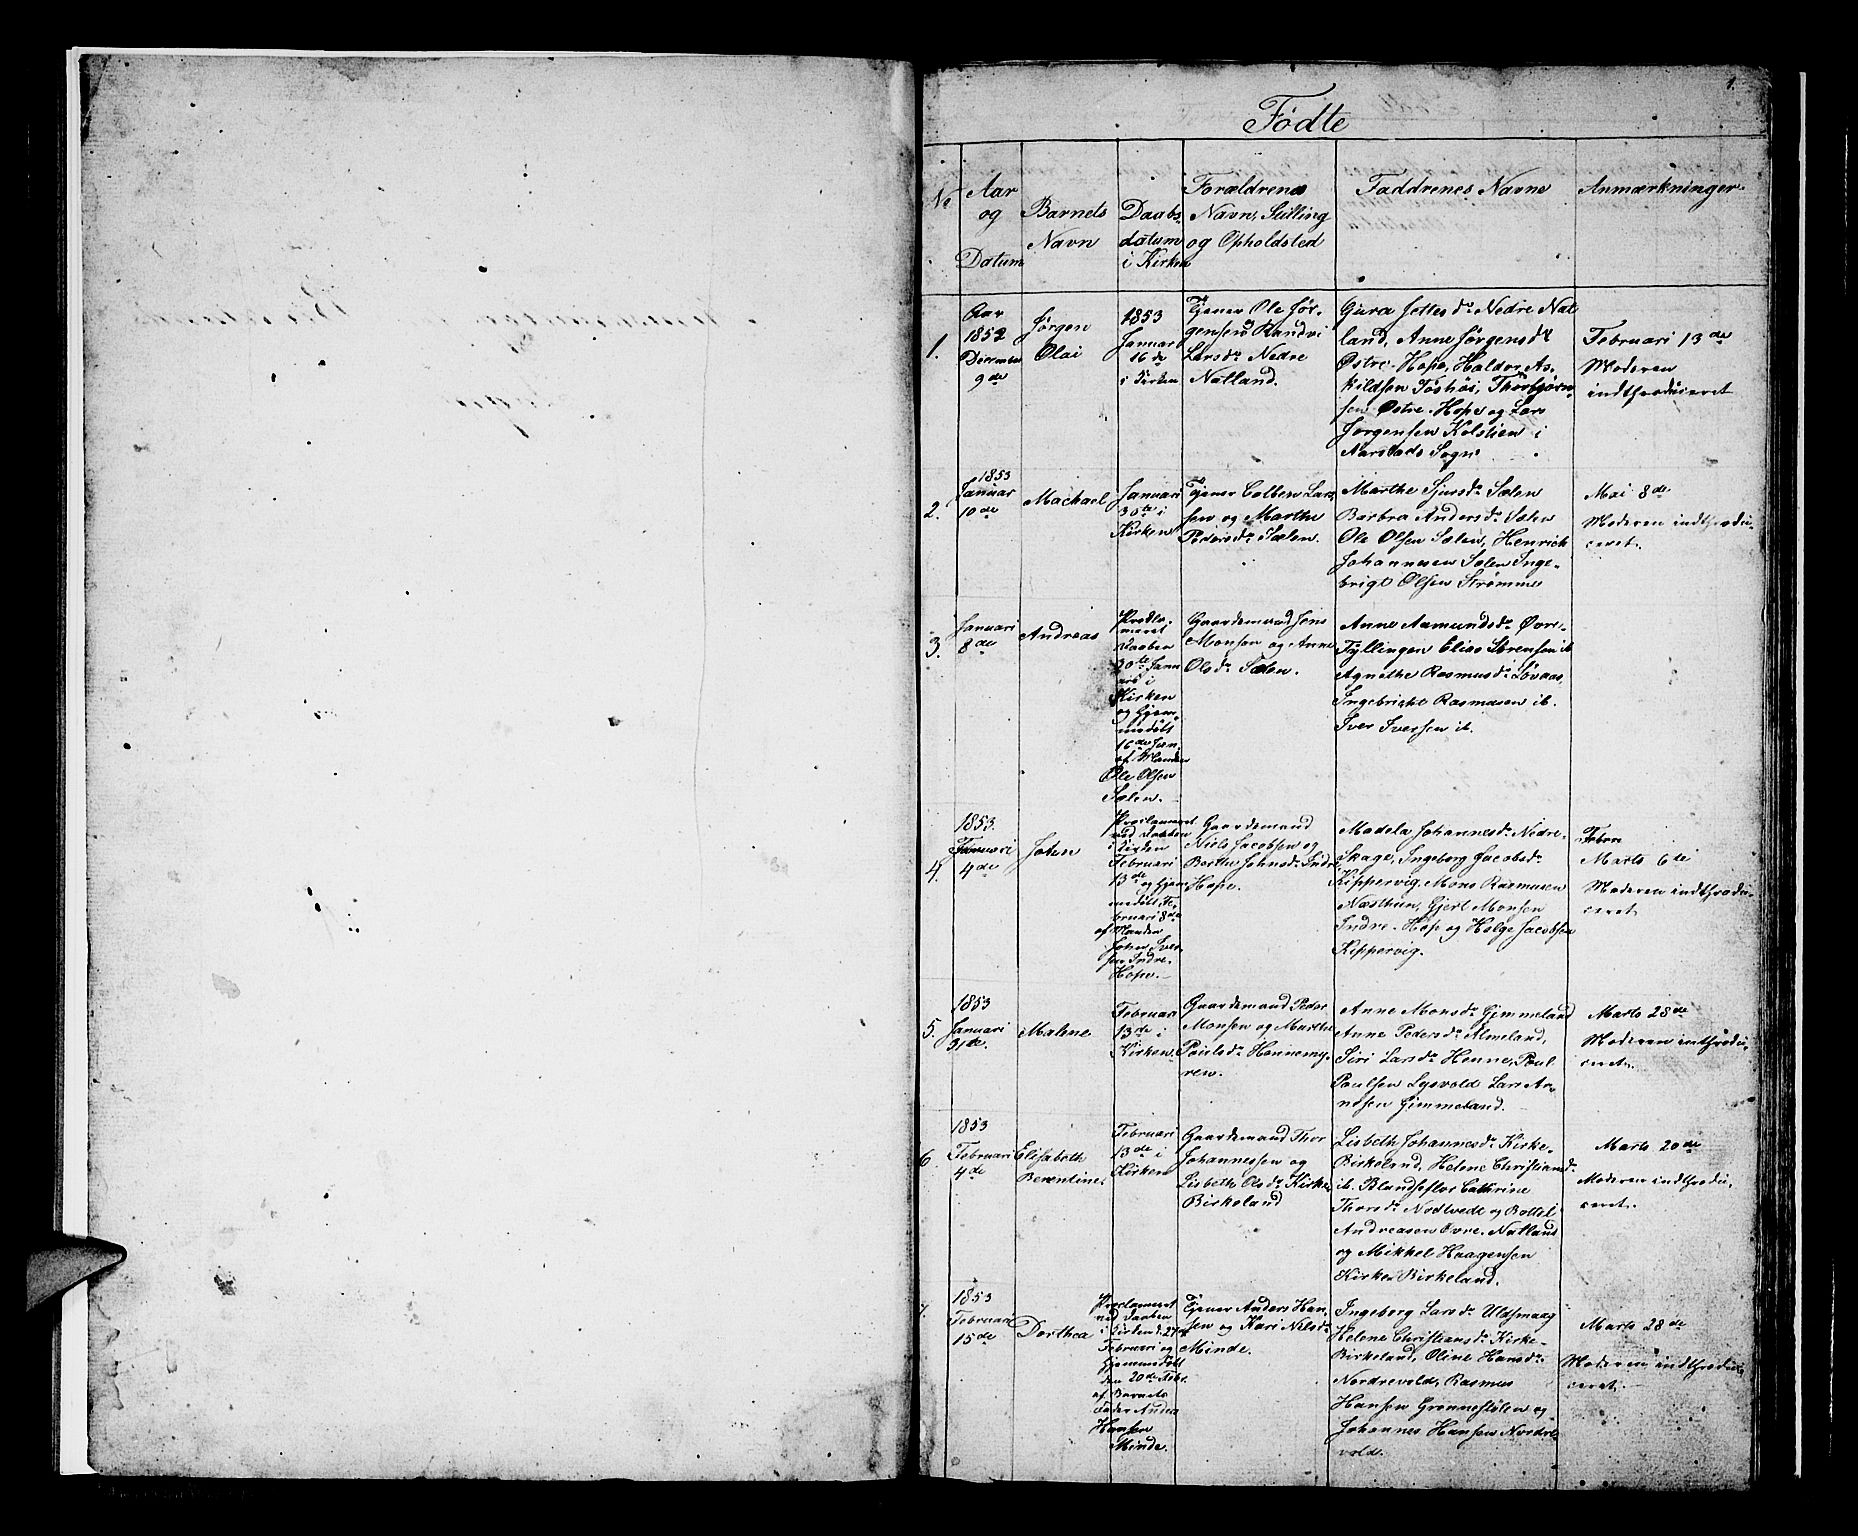 1.
Fødte
No
Aar
og
Datum
Barnets
Navn
Daabs-
datum
i Kirken
Forældrenes
Navn, Stilling
og Opholdsted
Faddrenes Navne
Anmærkninger.
1.
Aar
1852
December
9de
Jørgen
Olai
1853
Januar
16de
i Kirken
Tjener Ole Jør-
gensen og Randvi
Larsdr Nedre
Natland.
Gura Jettesdr Nedre Nat-
land, Anne Jørgensdr
Østre-Hope, Haldor As-
kildsen, Thorbjørn-
sen Østre-Hope og Lars
Jørgensen Kolstien i
Narstads Sogn
Februari 13de
Moderen
indthroduceret
2.
1853
Januar
10de
Machael
Januari
30te i
Kirken
Tjener Colben Lar-
sen og Marthe
Pedersdr Sælen.
Marthe Sjursdr Sælen
Barbra Andersdr Sælen
Ole Olsen Sælen, Henrick
Johannesen Sælen Inge-
brigt Olsen Strømme
Mai 8de
Moderen indthrodu-
ceret.
3.
Januari
8de
Andreas
Procla-
meret
Daaben
30te Janu-
ari i
Kirken
og Hjem-
medøbt
16de Jan.
af Manden
Ole Olsen
Sælen.
Gaardemand Jens
Monsen og Anne
Olsdr Sælen.
Anne Aamundsdr Øvre-
Fyllingen Elias Sørensen ib.
Agnethe Rasmusdr Løvaas,
Ingebrickt Rasmusen ib.
Iver Iversen ib.
4.
1853.
Januari
4de
Johen
Proclameret
ved Daaben
i Kirken
Februari
13de og Hjem-
medøbt Fe-
bruari 8de
af Manden
John Iver-
sen Indre-
Hope.
Gaardemand
Niels Jacobsen og
Berthe Johnsdr Indre
Hope.
Madela Johannesdr Nedre-
Skage, Ingeborg Jacobsdr
Kippervig, Mons Rasmusen
Næsthun, Gjert Monsen
Indre-Hop og Helge Jacobsen
Kippervig.
Febru
Marts 6te
Moderen indthrodu-
ceret
5.
1853
Januari
31de.
Malene
Februari
13de i
Kirken
Gaardemand Peder
Monsen og Marthe
Poulsdr Honnemy-
ren.
Anne Monsdr Gjmmeland
Anne Pedersdr Almeland,
Siri Larsdr Henne, Poul
Poulsen Lysvold Lars An-
ndsen Gimmeland.
Marts 28de
Moderen indthrodu-
ceret.
6
1853
Februari
4de
Elisabeth
Berentine.
Februari
13de i
Kirken
Gaardemand Thor
Johannessen og
Lisbeth Olsdr Kirke
Birkeland
Lisbeth Johannesdr Kirke-
Birkeland, Helene Christiansdr
ib. Blandseflor Cathrine
Thorsdr Nødtvedt og Bottel
Andreasen Øvre-Natland
og Mikkel Haagensen
Kirke Birkeland.
Marts 20de
Moderen indthrodu-
ceret.
7.
1853
Februari
15de
Dorthea
Proclameret
ved Daaben
i Kirken d. 27de
Februari og
Hjemmedøbt
den 20de Febr.
af Barnets
Fader Anders
Hansen
Minde.
Tjener Anders Han-
sen og Kari Nilsdr
Minde.
Ingeborg Larsdr Uldsmaag
Helene Christiansdr Kirke-
Birkeland, Oline Hansdr
Nordrevold, Rasmus
Hansen Grønnestølen og
Johannes Hansen Nordre-
vold.
Marts 28de
Moderen indthrodu-
ceret.